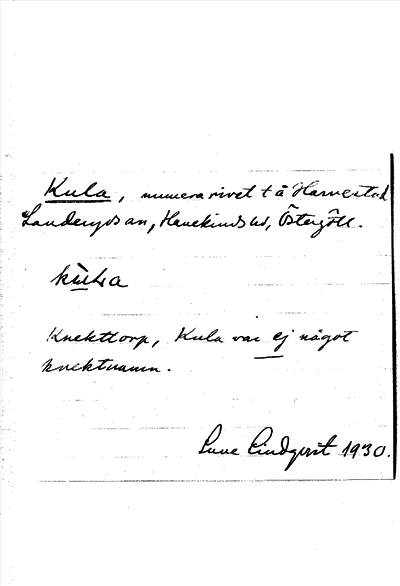 Kula, numera rivet t å Harvestad
Landeryds sn, Hanekinds hd, Östergötl.
kùLa
Knekttorp, Kula var ej något
knektnamn.
Sune Lindqvist 1930.